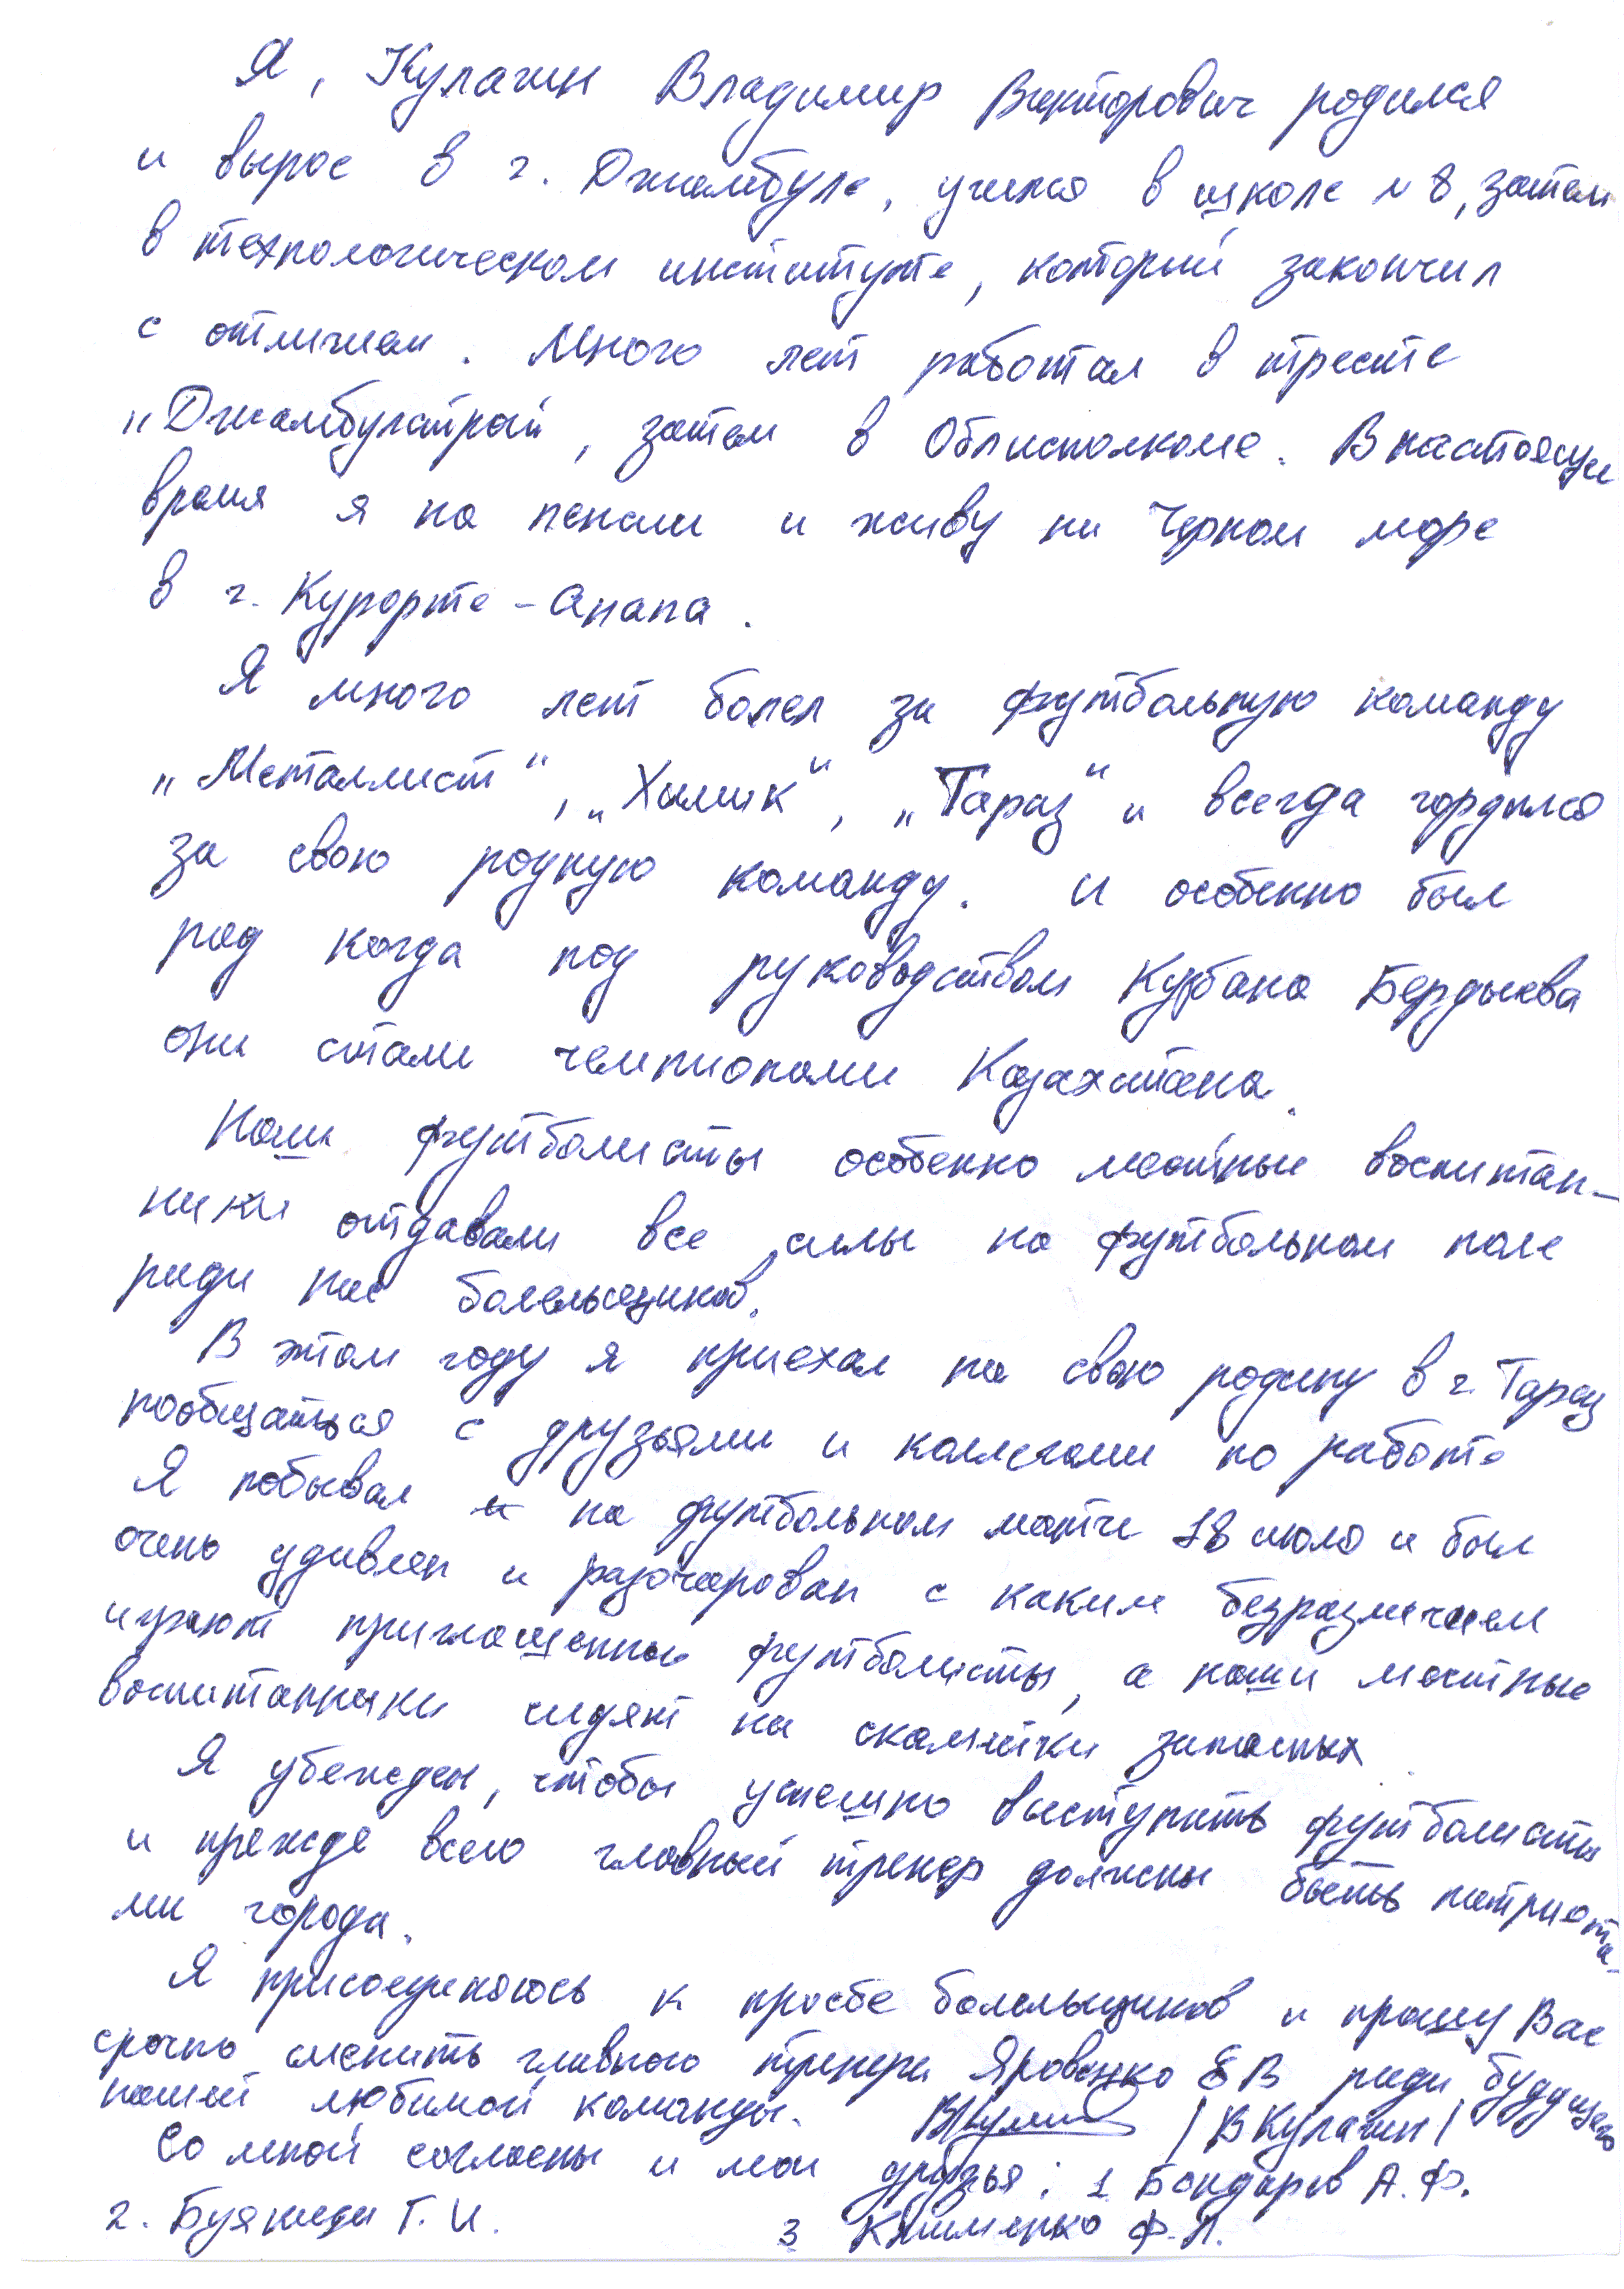 Я, Кулагин Владимир Викторович родился
и вырос в г. Джамбуле, учился в школе № 8, затем
в технологическом институте, который закончил
с отличием. Много лет работал в тресте
„Джамбулстрой, затем в Облисполкоме. В настоящее
время я на пенсии и живу на Черном море
в г. Курорте-Анапа.
Я много лет болел за футбольную команду
„Металлист“, „Химик“, „Тараз“ и всегда гордился
за свою родную команду. И особенно был
рад когда под руководством Курбана Бердыева
они стали чемпионами Казахстана.
Наши футболисты особенно местные воспитан-
ники отдавали все силы на футбольном поле
ради нас болельщиков.
В этом году я приехал на свою родину в г. Тараз
пообщаться с друзьями и коллегами по работе
Я побывал на футбольном матче 18 июля и был
очень удивлен и разочарован с каким безразличием
играют приглашенные футболисты, а наши местные
воспитанники сидят на скамейки запасных.
Я убежден, чтобы успешно выступить футболисты
и прежде всего главный тренер должны быть патриота-
ми города.
Я присоединяюсь к просбе болельщиков и прошу Вас
срочно сменить главного тренера Яровенко Е В ради будущего
нашей любимой команды. /В Кулагин/
Со мной согласны и мои друзья: 1 Бондарев А. Ф.
2. Буякиди Г. И. 3 Клименко Ф. Л.